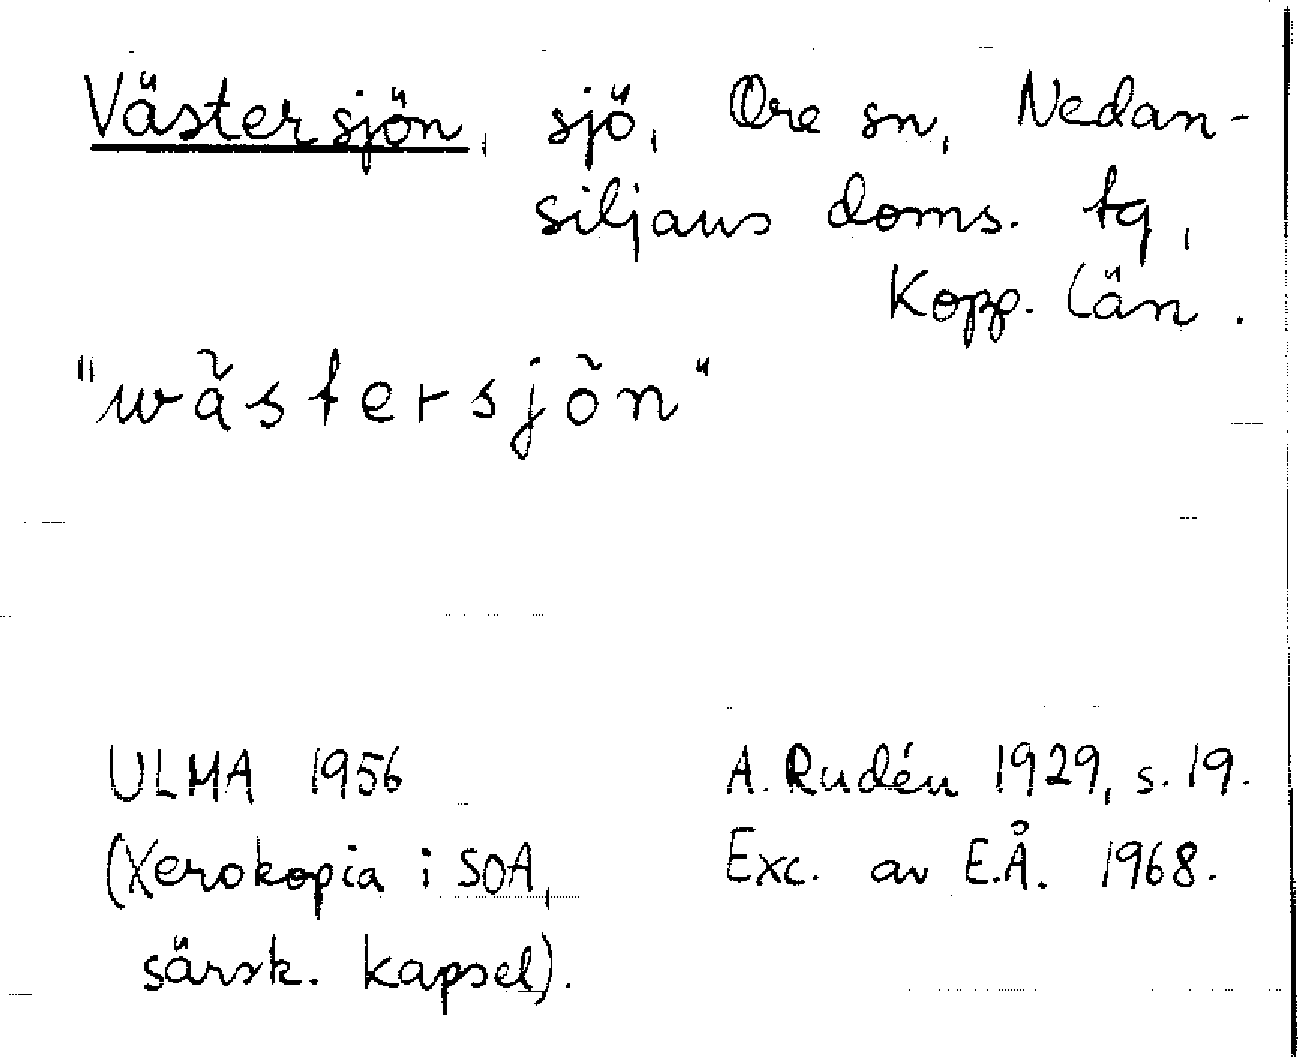 Västersjön, sjö, Ore sn, Nedan-
siljans doms. tg,
Kopp. län.
"wästersjön"
ULMA 1956
A. Rudén 1929, s. 19.
(Xerokopia i SOA,
Exc. av E.Å. 1968.
särsk. kapsel).